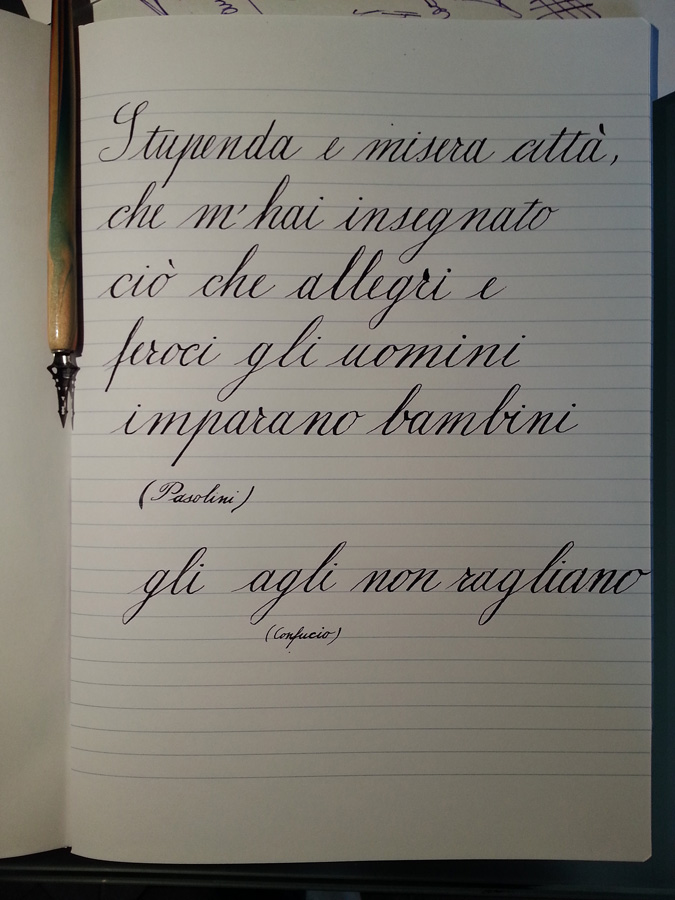 Stupenda e misera città,
che m'hai insegnato
ciò che allegri e
feroci gli uomini
imparano bambini
(Pasolini)
gli agli non ragliano
(Confucio)